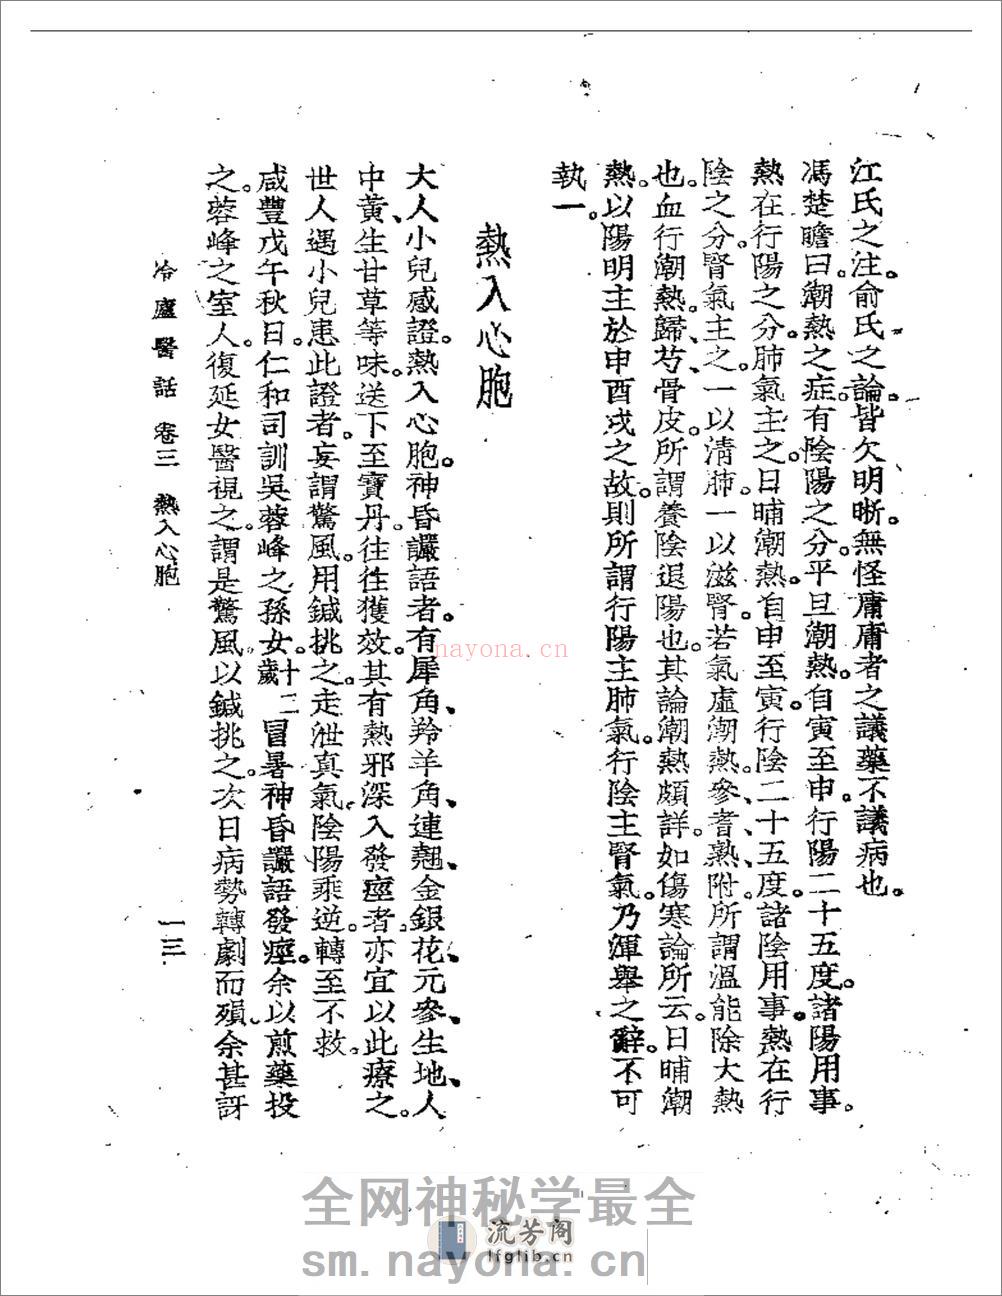 江氏之注。俞氏之論。皆欠明晰。無怪庸庸者之議藥不議病也。
馮楚瞻曰。潮熱之症。有陰陽之分。平旦潮熱。自寅至申。行陽二十五度。諸陽用事。
熱在行陽之分。肺氣主之。日晡潮熱。自申至寅。行陰二十五度。諸陰用事。熱在行
陰之分。腎氣主之。一以清肺。一以滋腎。若氣虛潮熱。參、耆、熟附。所謂溫能除大熱
也。血行潮熱。歸、芍、骨皮。所謂養陰退陽也。其論潮熱頗詳。如傷寒論所云。日晡潮
熱。以陽明主於申酉戌之故。則所謂行陽主肺氣。行陰主腎氣。乃渾舉之辭。不可
執一。
熱入心胞
大人小兒感證。熱入心胞。神昏讝語者。有犀角、羚羊角、連翹、金銀花、元參、生地、人
中黃、生甘草等味。送下至寶丹。往往獲效。其有熱邪深入發痙者。亦宜以此療之。
世人遇小兒患此證者。妄謂驚風。用鍼挑之。走泄真氣。陰陽乘逆。轉至不救。
咸豐戊午秋日。仁和司訓吳蓉峰之孫女。十二歲 冒暑神昏讝語發痙。余以煎藥投
之。蓉峰之室人。復延女醫視之。謂是驚風。以鍼挑之。次日病勢轉劇而殞。余甚訝
冷廬醫話 卷三 熱入心胞 一三
nayona.cn
全网神秘学最全
流芳阁
lfglib.cn
sm.nayona.cn